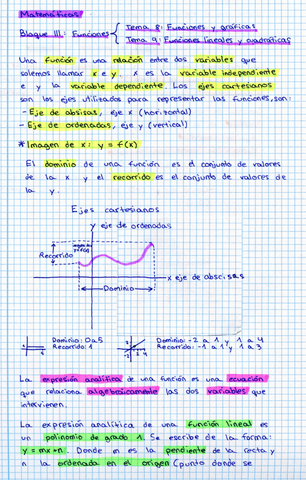 Matemáticas
Bloque III: Funciones
Tema 8: Funciones y gráficas
Tema 9: Funciones lineales y cuadráticas
Una función es una relación entre dos variables que
solemos llamar x e y. x es la variable independiente
e y la variable dependiente. Los ejes cartesianos
son los ejes utilizados para representar las funciones, son:
- Eje de absisas, eje x (horizontal)
- Eje de ordenadas, eje y (vertical)
* Imagen de x: y = f(x)
El dominio de una función es el conjunto de valores
de la x y el recorrido es el conjunto de valores de
la y.
Ejes cartesianos
y eje de ordenadas
Recorrido
x eje de abscisas
Dominio
Dominio: 0 a 5
Recorrido: 1
Dominio: -2 a 1 y 1 a 4
Recorrido: -1 a 1 y 1 a 3
La expresión analítica de una función es una ecuación
que relaciona algebraicamente las dos variables que
intervienen.
La expresión analítica de una función lineal es
un polinomio de grado 1. Se escribe de la forma:
y = mx + n. Donde m es la pendiente de la recta y
n la ordenada en el origen (punto donde se